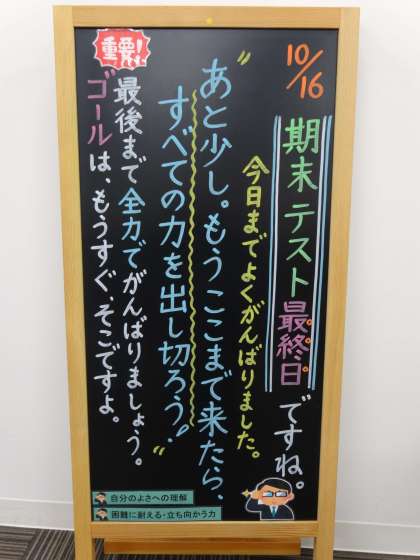 10/16
期末テスト最終日ですね。
今日までよくがんばりました。
"あと少し。もうここまで来たら、
すべての力を出し切ろう!"
重要!
最後まで全力でがんばりましょう。
ゴールは、もうすぐ、そこですよ。
自分のよさへの理解
困難に耐える・立ち向かう力